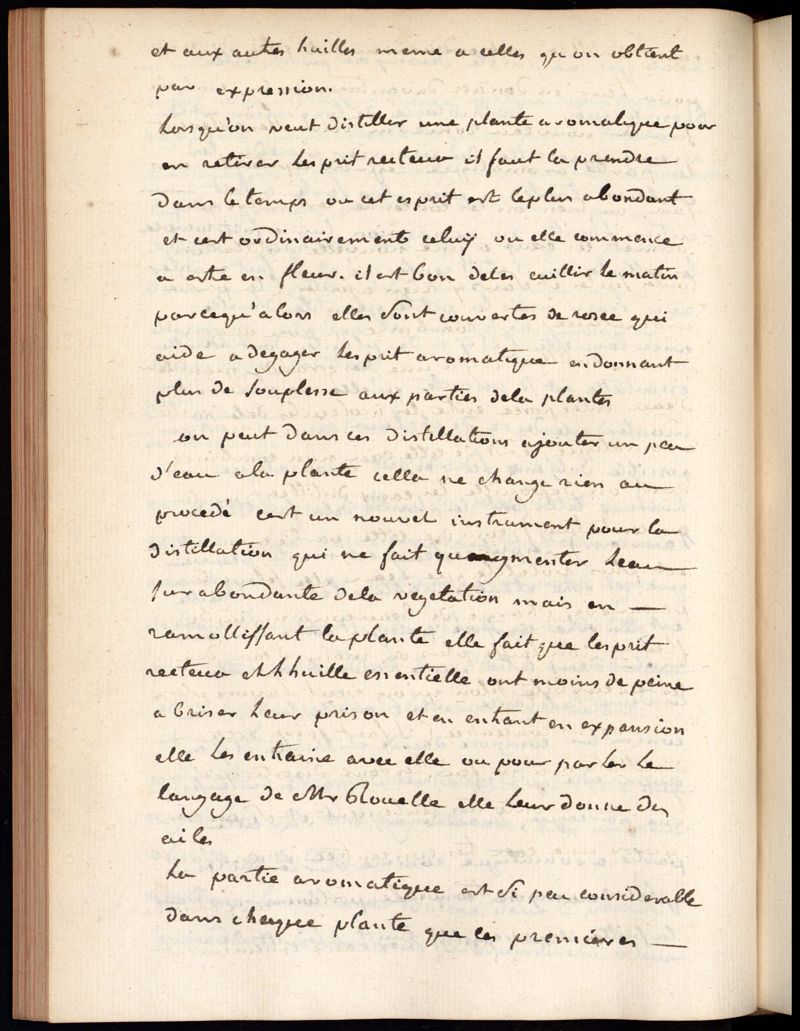 et aux autres huilles meme a celles qu on obtient
par expression.
Lorsqu'on veut distiller une plante aromatique pour
en retirer lesprit recteur il faut la prendre
dans le temps ou cet esprit est le plus abondant
et cest ordinairement celuy ou elle commence
a etre en fleur. il est bon deles cuillir le matin
parcequ'alors elles sont couvertes de rosee qui
aide a degager lesprit aromatique en donnant
plus de souplesse aux parties dela plantes
on peut dans ces distillations ajouter un peu
d'eau a la plante cella ne change rien au
procedé cest un nouvel instrument pour la
distillation qui ne fait qu augmenter leau
surabondante dela vegetation mais en —
ramollissant la plante elle fait que lesprit
recteur et lhuille essentielle ont moins de peine
a briser leur prison et en entrant en expansion
elle les entraine avec elle ou pour parler le
langage de Mr Rouelle elle leur donne des
ailes
La partie aromatique est si peu considerable
dans chaque plante que les premieres —